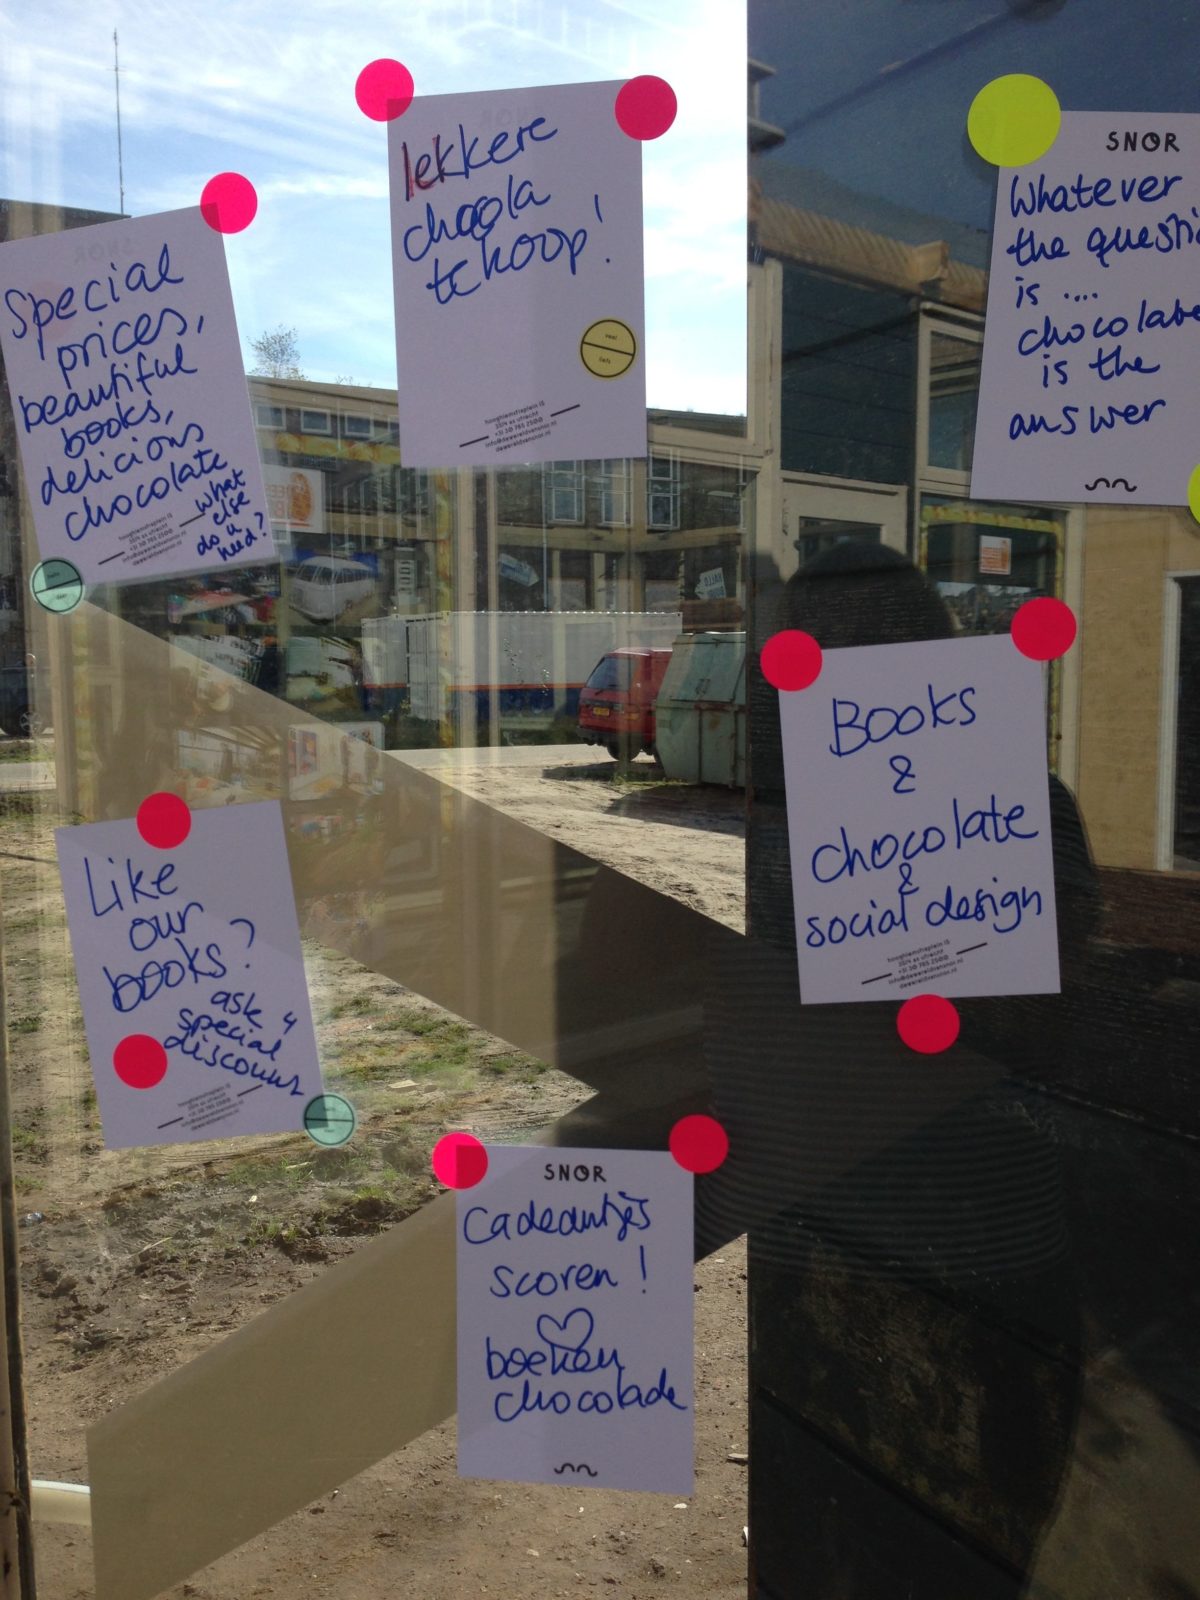 Special
prices,
beautiful
books,
delicious
chocolate
what
else
do u
need?
hooghiemstraplein 15
3514 ax utrecht
info@dewereldvansnor.nl
dewereldvansnor.nl
lekkere
choola
te koop!
veel
liefs
hooghiemstraplein 15
3514 ax utrecht
+31 30 785 2500
info@dewereldvansnor.nl
dewereldvansnor.nl
SNOR
Whatever
the questio
is ....
chocolate
is the
answer
Books
&
chocolate
&
social design
hooghiemstraplein 15
3514 ax utrecht
+31 30 785 2500
info@dewereldvansnor.nl
dewereldvansnor.nl
Like
our
books?
ask 4
special
discount
hooghiemstraplein 15
3514 ax utrecht
+31 30 785 2500
info@dewereldvansnor.nl
dewereldvansnor.nl
SNOR
Cadeautjes
scoren!
boeken
chocolade